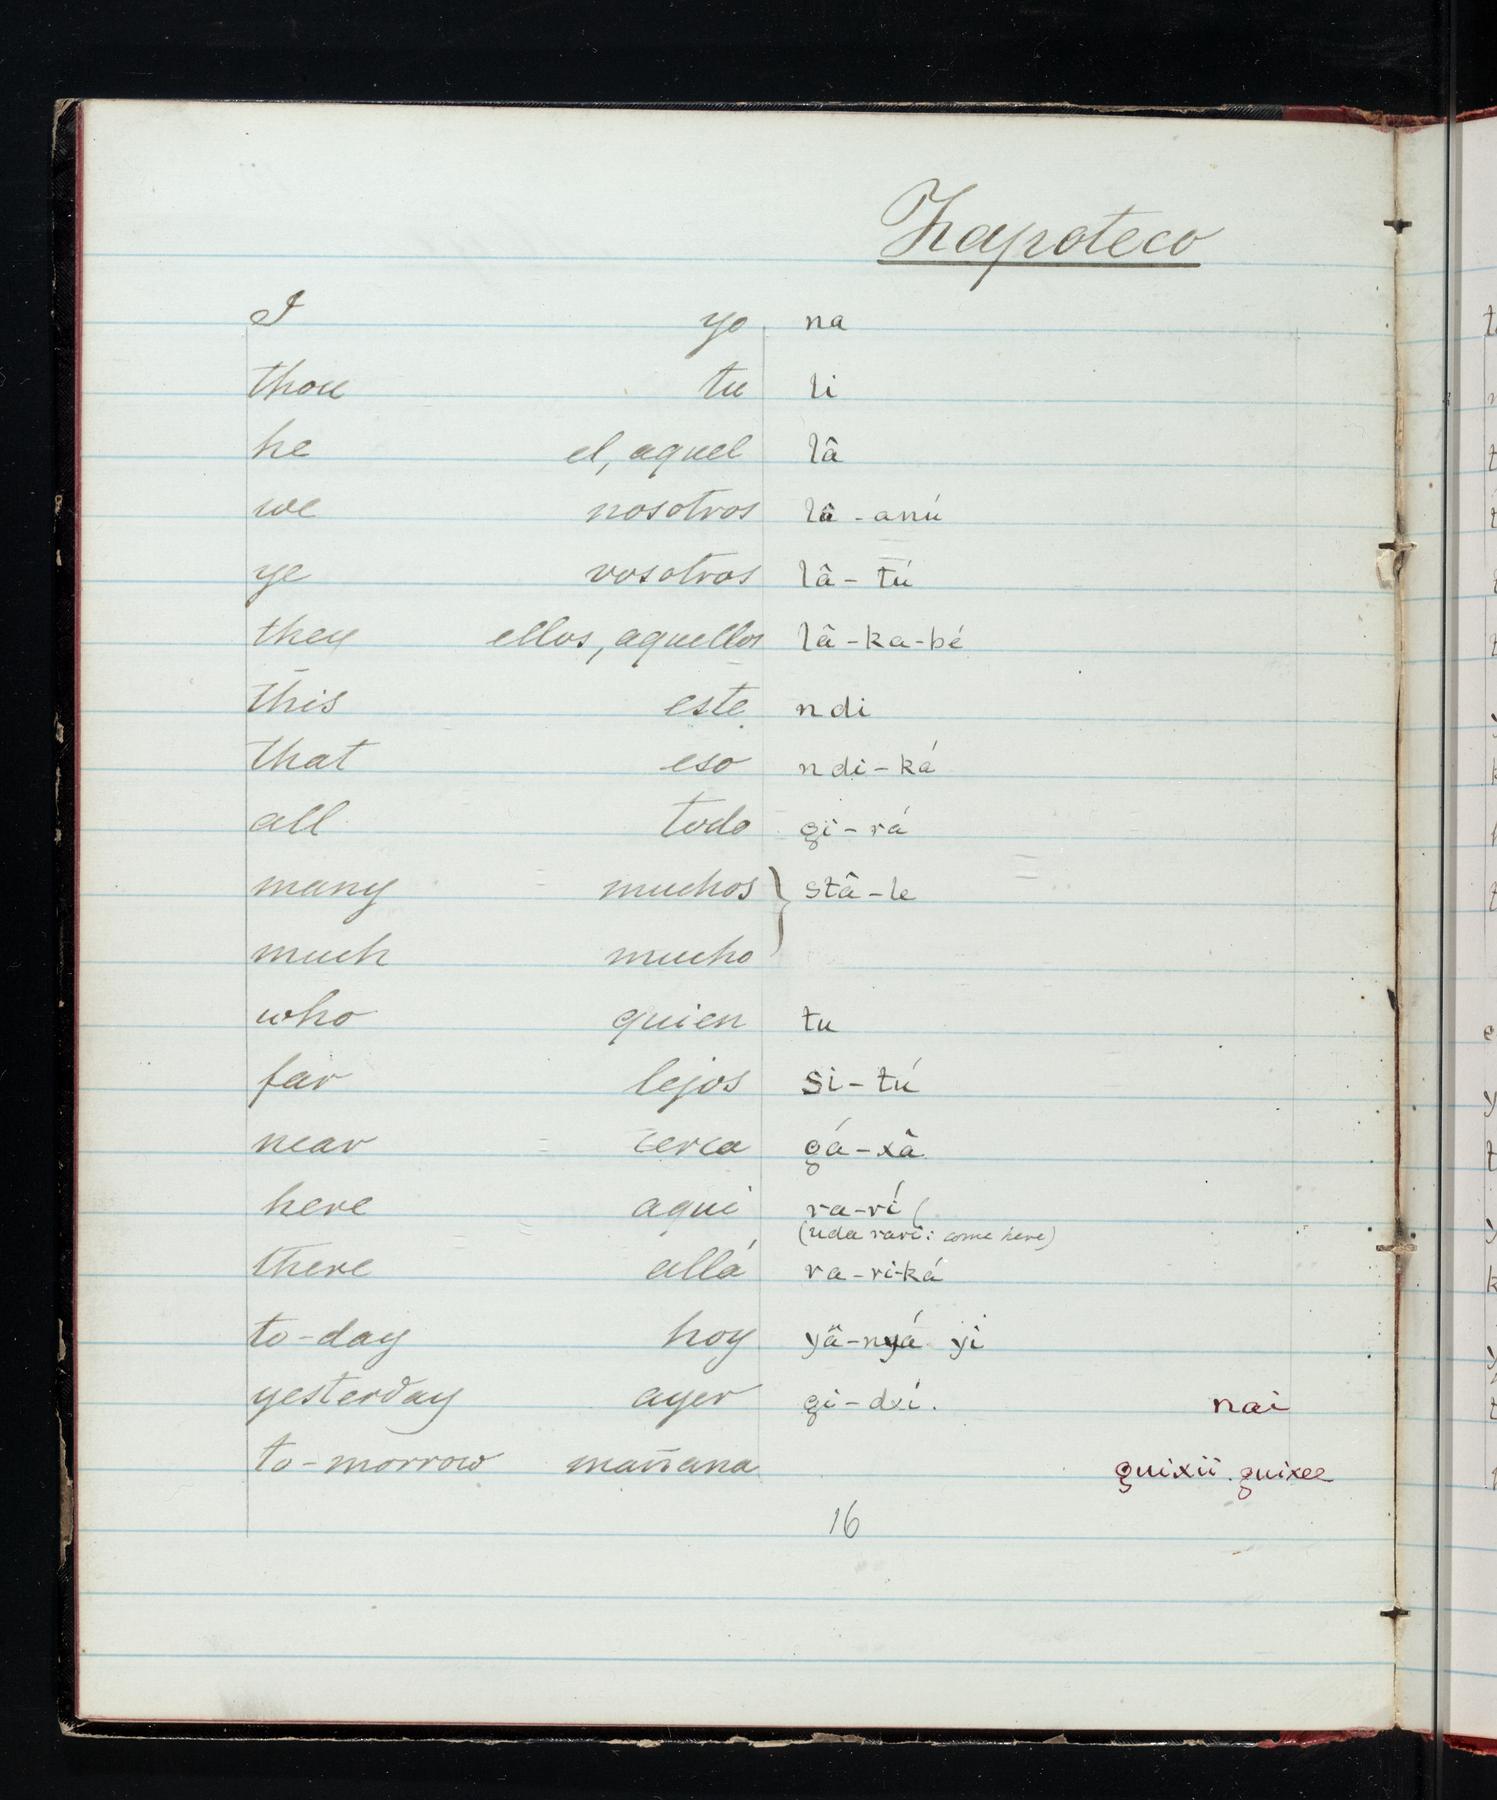 Zapoteco
I yo na
thou tu li
he el, aquel lâ
we nosotros lâ-anú
ye vosotros lâ-tú
they ellos, aquellos lâ-ka-bé
this este ndi
that eso ndi-ká
all todo gi-rá
many muchos } stâ-le
much mucho
who quien tu
far lejos si-tú
near cerca gá-xâ
here aqui ra-rí (
(uda rarí: come here)
there allá ra-ri-ká
to-day hoy yâ-nyá yi
yesterday ayer gi-dxí. nai
to-morrow mañana guixií. guixee
16